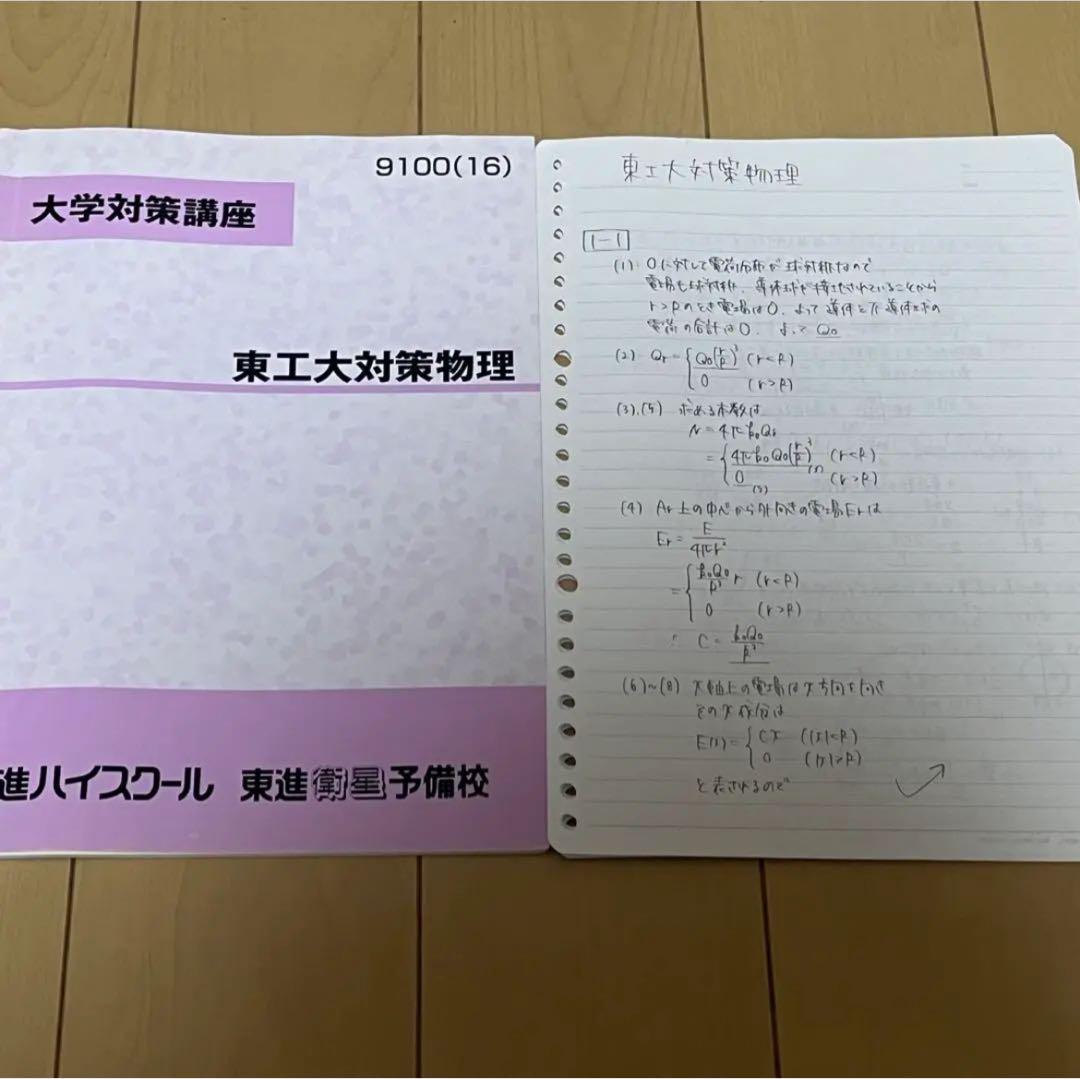 9100(16)
大学対策講座
東工大対策物理
進ハイスクール 東進衛星予備校
東工大対策物理
1-1
(1) Oに対して電荷分布が球対称なので
電場も球対称、導体球が接地されていることから
r>Rのとき電場は0、よって導体と不導体球の
電荷の合計は0. よって Q0
(2) Qr = { Q0(r/R)^3 (r<R)
0 (r>R)
(3),(5) 求める本数は
N = 4πk0Qr
= { 4πk0Q0(r/R)^3 (r<R)
0 (r>R)
(4) Ar上の中心から外向きの電場Erは
Er = E/4πr^2
= { k0Q0/R^3 r (r<R)
0 (r>R)
∴ C = k0Q0/R^3
(6)~(8) x軸上の電場はx方向を向き
そのx成分は
E(x) = { Cx (|x|<R)
0 (|x|>R)
と表されるので